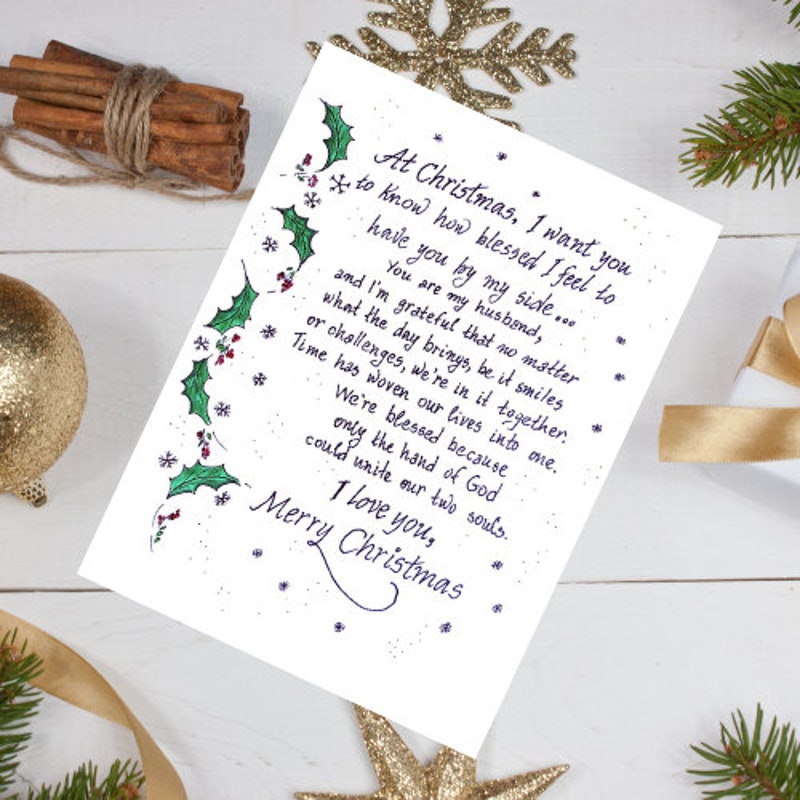 At Christmas, I want you
to know how blessed I feel to
have you by my side...
You are my husband,
and I'm grateful that no matter
what the day brings, be it smiles
or challenges, we're in it together.
Time has woven our lives into one.
We're blessed because
only the hand of God
could unite our two souls.
I love you,
Merry Christmas